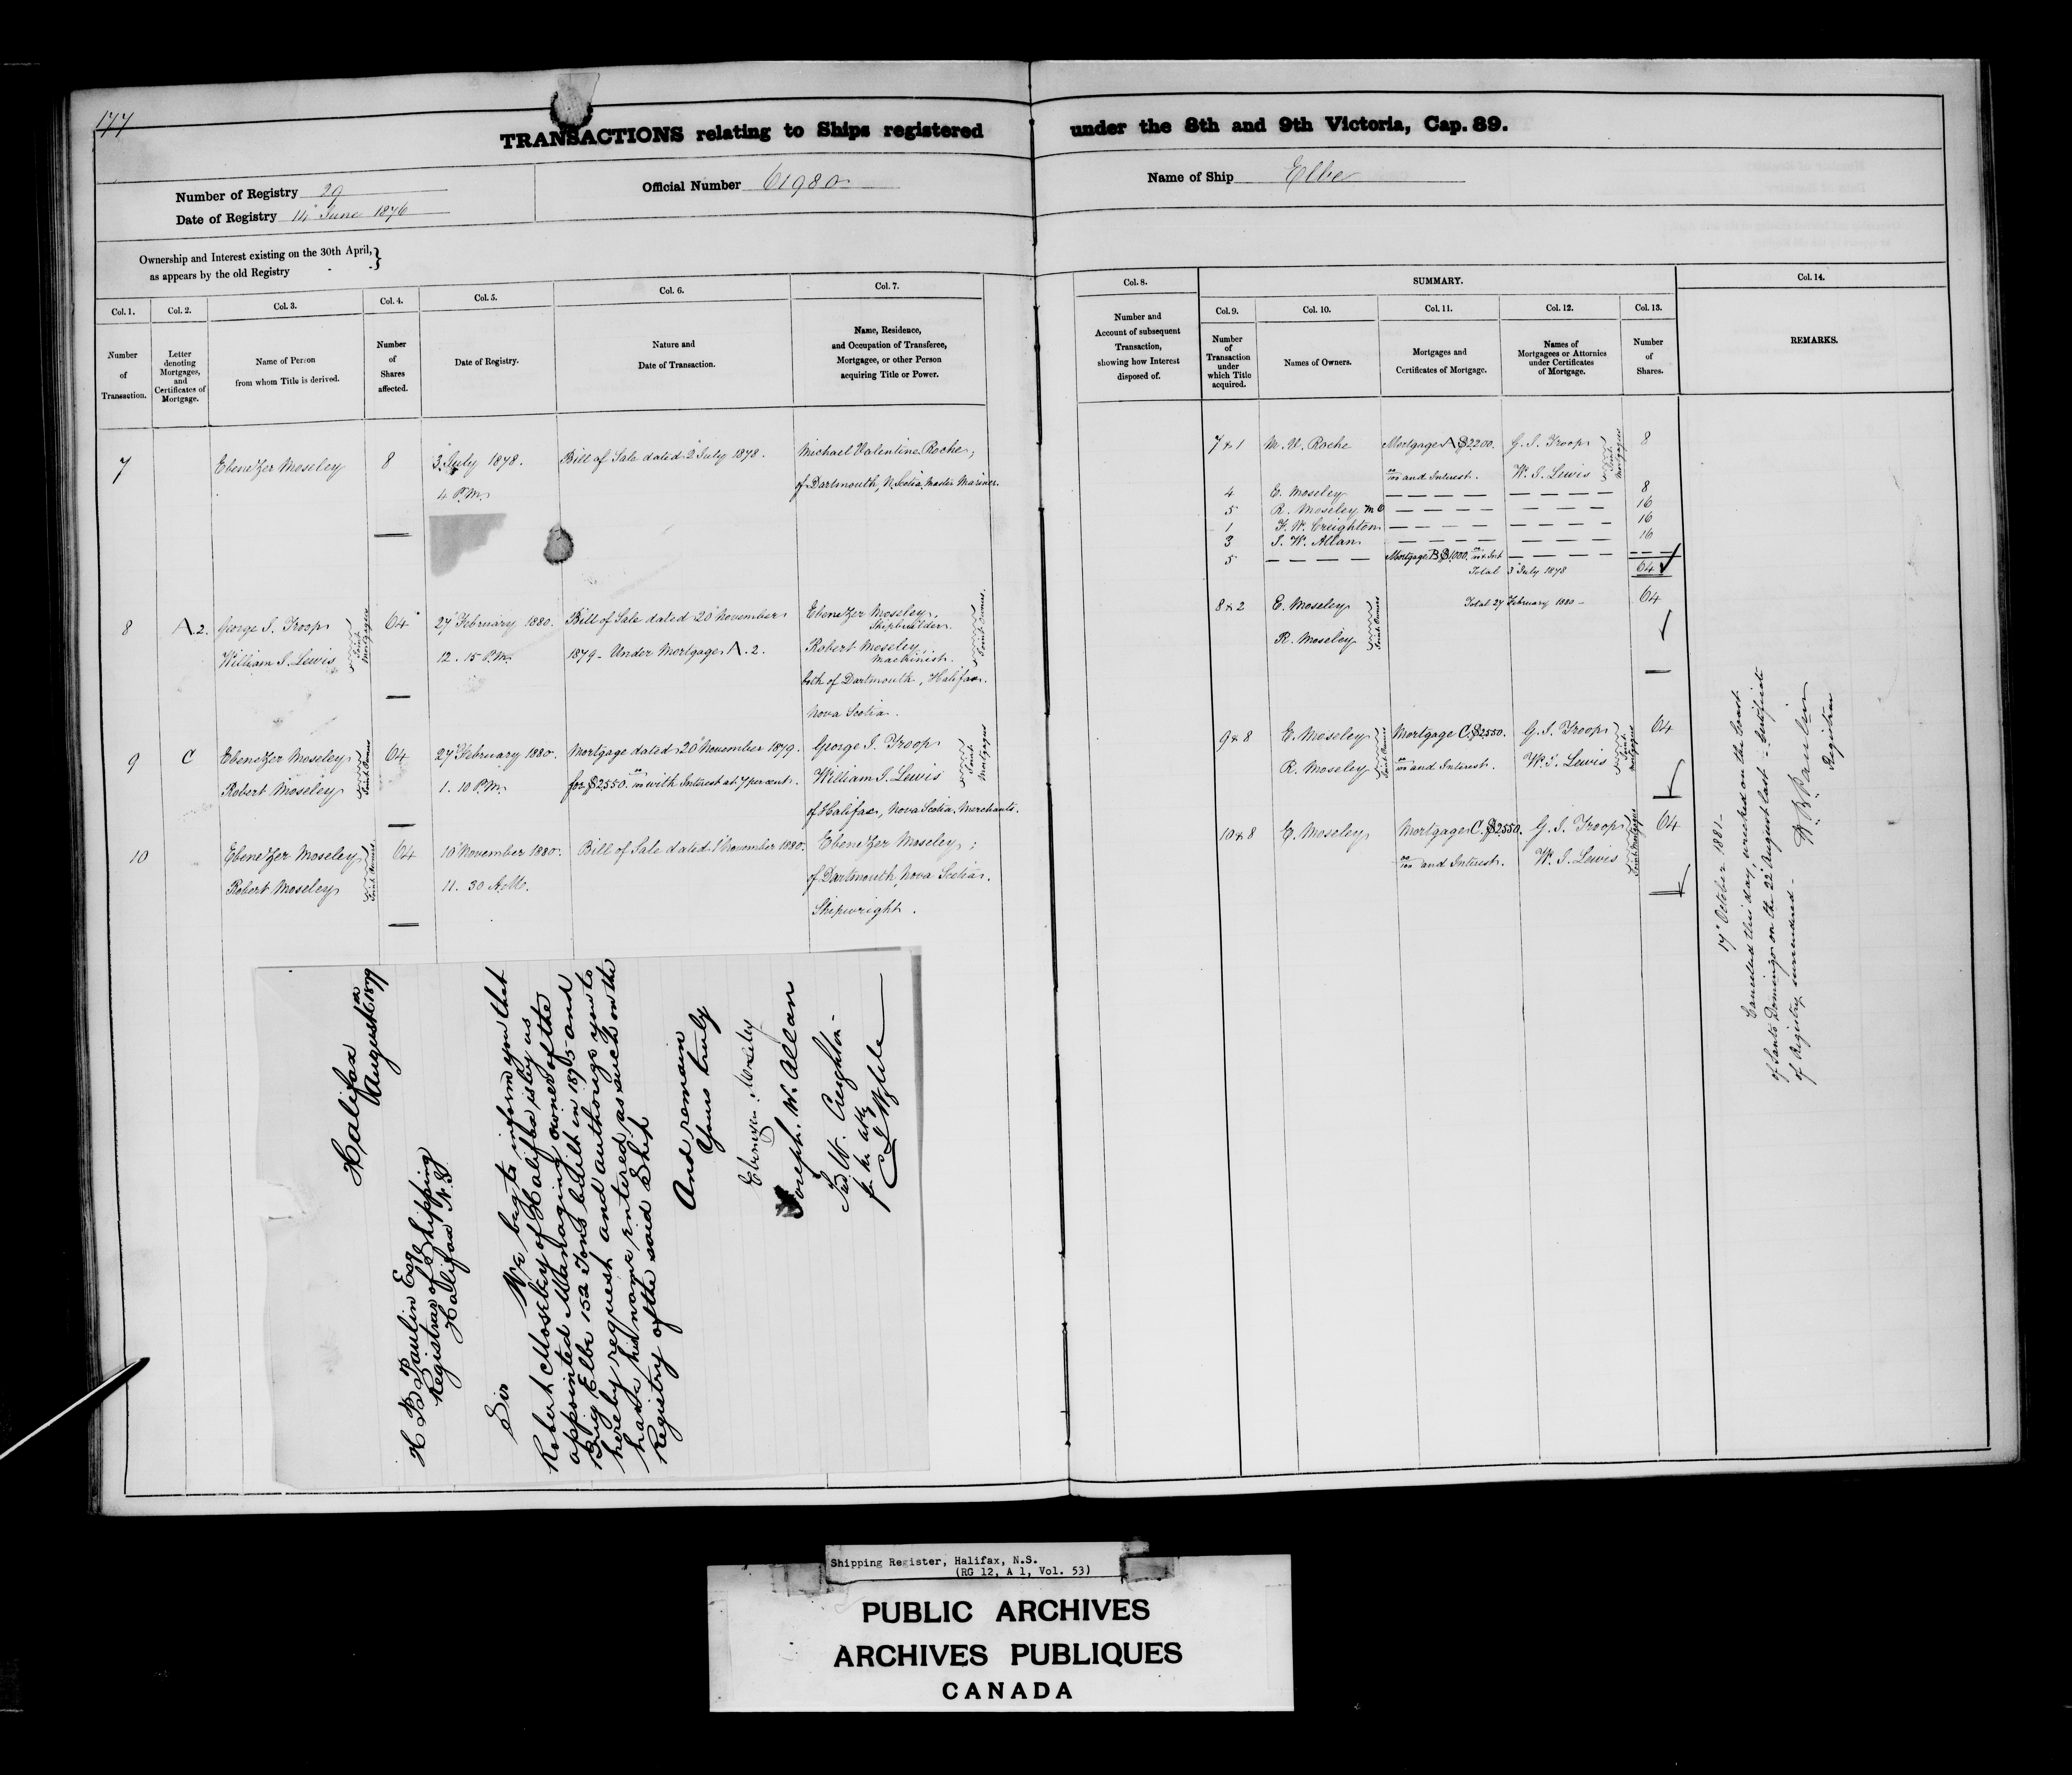 177
TRANSACTIONS relating to Ships registered under the 8th and 9th Victoria, Cap. 89.
Number of Registry 29
Date of Registry 14 June 1876
Official Number 61980
Name of Ship Elbe
Ownership and Interest existing on the 30th April,}
as appears by the old Registry
Col. 1. Number of Transaction.
Col. 2. Letter denoting Mortgages, and Certificates of Mortgage.
Col. 3. Name of Person from whom Title is derived.
Col. 4. Number of Shares affected.
Col. 5. Date of Registry.
Col. 6. Nature and Date of Transaction.
Col. 7. Name, Residence, and Occupation of Transferee, Mortgagee, or other Person acquiring Title or Power.
Col. 8. Number and Account of subsequent Transaction, showing how Interest disposed of.
SUMMARY.
Col. 9. Number of Transaction under which Title acquired.
Col. 10. Names of Owners.
Col. 11. Mortgages and Certificates of Mortgage.
Col. 12. Names of Mortgagees or Attornies under Certificates of Mortgage.
Col. 13. Number of Shares.
Col. 14. REMARKS.
7 Ebenezer Moseley 8 3 July 1878. Bill of Sale dated 2 July 1878. Michael Valentine Roche,
4 P.M. of Dartmouth, N. Scotia. Master Mariner.
8 A.2. George J. Troop 64 27 February 1880. Bill of Sale dated 20 November Ebenezer Moseley,
Shipbuilder.
William J. Lewis Joint Mortgagees 12.15 P.M. 1879 - Under Mortgage A.2. Robert Moseley,
Machinist. Joint Owners.
both of Dartmouth, Halifax.
Nova Scotia.
9 C Ebenezer Moseley 64 27 February 1880. Mortgage dated 20 November 1879. George J. Troop
Robert Moseley Joint Owners 1.10 P.M. for $2550. 00/100 with Interest at 7 per cent. William J. Lewis Joint Mortgagees
of Halifax, Nova Scotia. Merchants.
10 Ebenezer Moseley 64 10 November 1880. Bill of Sale dated 1 November 1880. Ebenezer Moseley,
Robert Moseley Joint Owners 11.30 A.M. of Dartmouth, Nova Scotia.
Shipwright.
7 & 1 M. V. Roche Mortgage A $2200. G. J. Troop 8
00/100 and Interest. W. J. Lewis Joint Mortgagees
4 E. Moseley — — — — — — — — 8
5 R. Moseley M O — — — — — — — — 16
1 F. W. Creighton — — — — — — — — 16
3 J. W. Allan — — — — — — — — 16
5 — — — — Mortgage B $1000. 00/100 & Int — — — — — — —
Total 3 July 1878 64
8 & 2 E. Moseley Total 27 February 1880 - 64
R. Moseley Joint Owners
9 & 8 E. Moseley Mortgage C. $2550. G. J. Troop 64
R. Moseley Joint Owners 00/100 and Interest. W. J. Lewis Joint Mortgagees
10 & 8 E. Moseley Mortgage C. $2550. G. J. Troop 64
00/100 and Interest. W. J. Lewis Joint Mortgagees
17 October 1881 -
Cancelled this day, wrecked on the Coast
of Santo Domingo on the 22 August last - Certificate
of Registry surrendered -
H. B. Paulin
Registrar
Halifax
August 1879
H B Paulin Esq
Registrar of Shipping
Halifax N.S.
Sir
We beg to inform you that
Robert Moseley of Halifax is by us
appointed Managing owner of the
Brig Elbe 152 Tons built in 1875 and
hereby request and authorize you to
have his name entered as such on the
Registry of the said Ship
And remain
Yours truly
Ebenezer Moseley
Joseph. W. Allan
Fred W. Creighton -
Shipping Register, Halifax, N.S.
(RG 12, A 1, Vol. 53)
PUBLIC ARCHIVES
ARCHIVES PUBLIQUES
CANADA